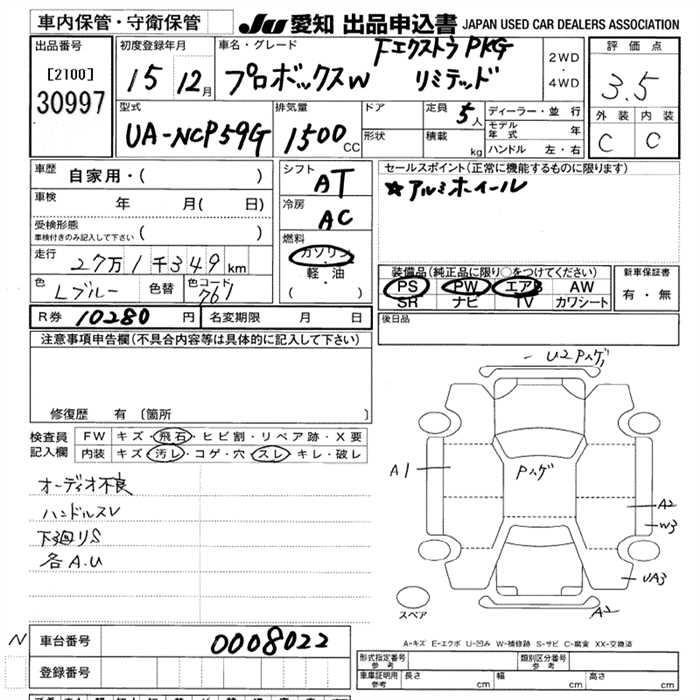 車内保管・守衛保管
JU 愛知 出品申込書 JAPAN USED CAR DEALERS ASSOCIATION
出品番号
[2100]
30997
初度登録年月
15 12月
車名・グレード
Fエクストラ PKG
プロボックスW リミテッド
2WD
・
4WD
評価点
3.5
外装 内装
C C
型式
UA-NCP59G
排気量
1500 CC
ドア
形状
定員 5人
積載 kg
ディーラー・並行
モデル年式 年
ハンドル 左・右
車歴
自家用・( )
車検 年 月( 日)
受検形態
車検付きのみ記入して下さい ( )
走行
27万1千349km
色 Lブルー
色替
色コード 761
シフト
AT
冷房
AC
燃料
ガソリン
・
軽・油
( )
セールスポイント(正常に機能するものに限ります)
☆アルミホイール
装備品(純正品に限り○をつけてください)
PS PW エアB AW
SR ナビ TV カワシート
新車保証書
有・無
R券 10280 円
名変期限 月 日
後日品
注意事項申告欄(不具合内容等は具体的に記入して下さい)
修復歴 有〔箇所 〕
検査員記入欄
FW キズ・飛石・ヒビ割・リペア跡・X要
内装 キズ・汚レ・コゲ・穴・スレ・キレ・破レ
オーディオ不良
ハンドルスレ
下廻りS
各A.U
U2 Pハゲ
A1
Pハゲ
A2
W3
UA3
A2
スペア
A-キズ E-エクボ U-凹み W-補修跡 S-サビ C-腐食 XX-交換済
N
車台番号 0008022
登録番号
形式指定番号 参考
類別区分番号 参考
車庫証明用 参考
長さ cm 幅 cm 高さ cm